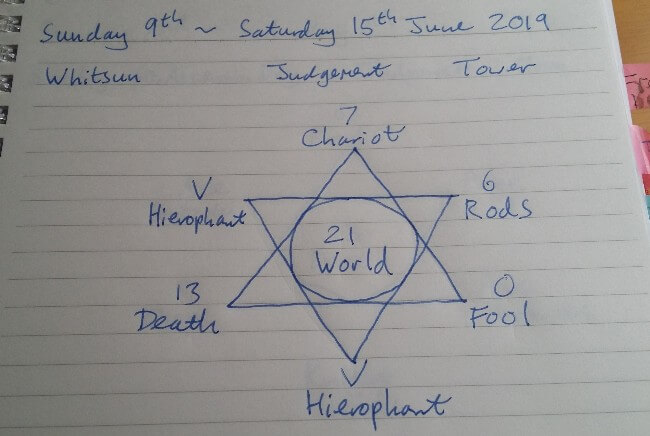 Sunday 9th ~ Saturday 15th June 2019
Whitsun Judgement Tower
7
Chariot
V
Hierophant
6
Rods
21
World
13
Death
0
Fool
V
Hierophant